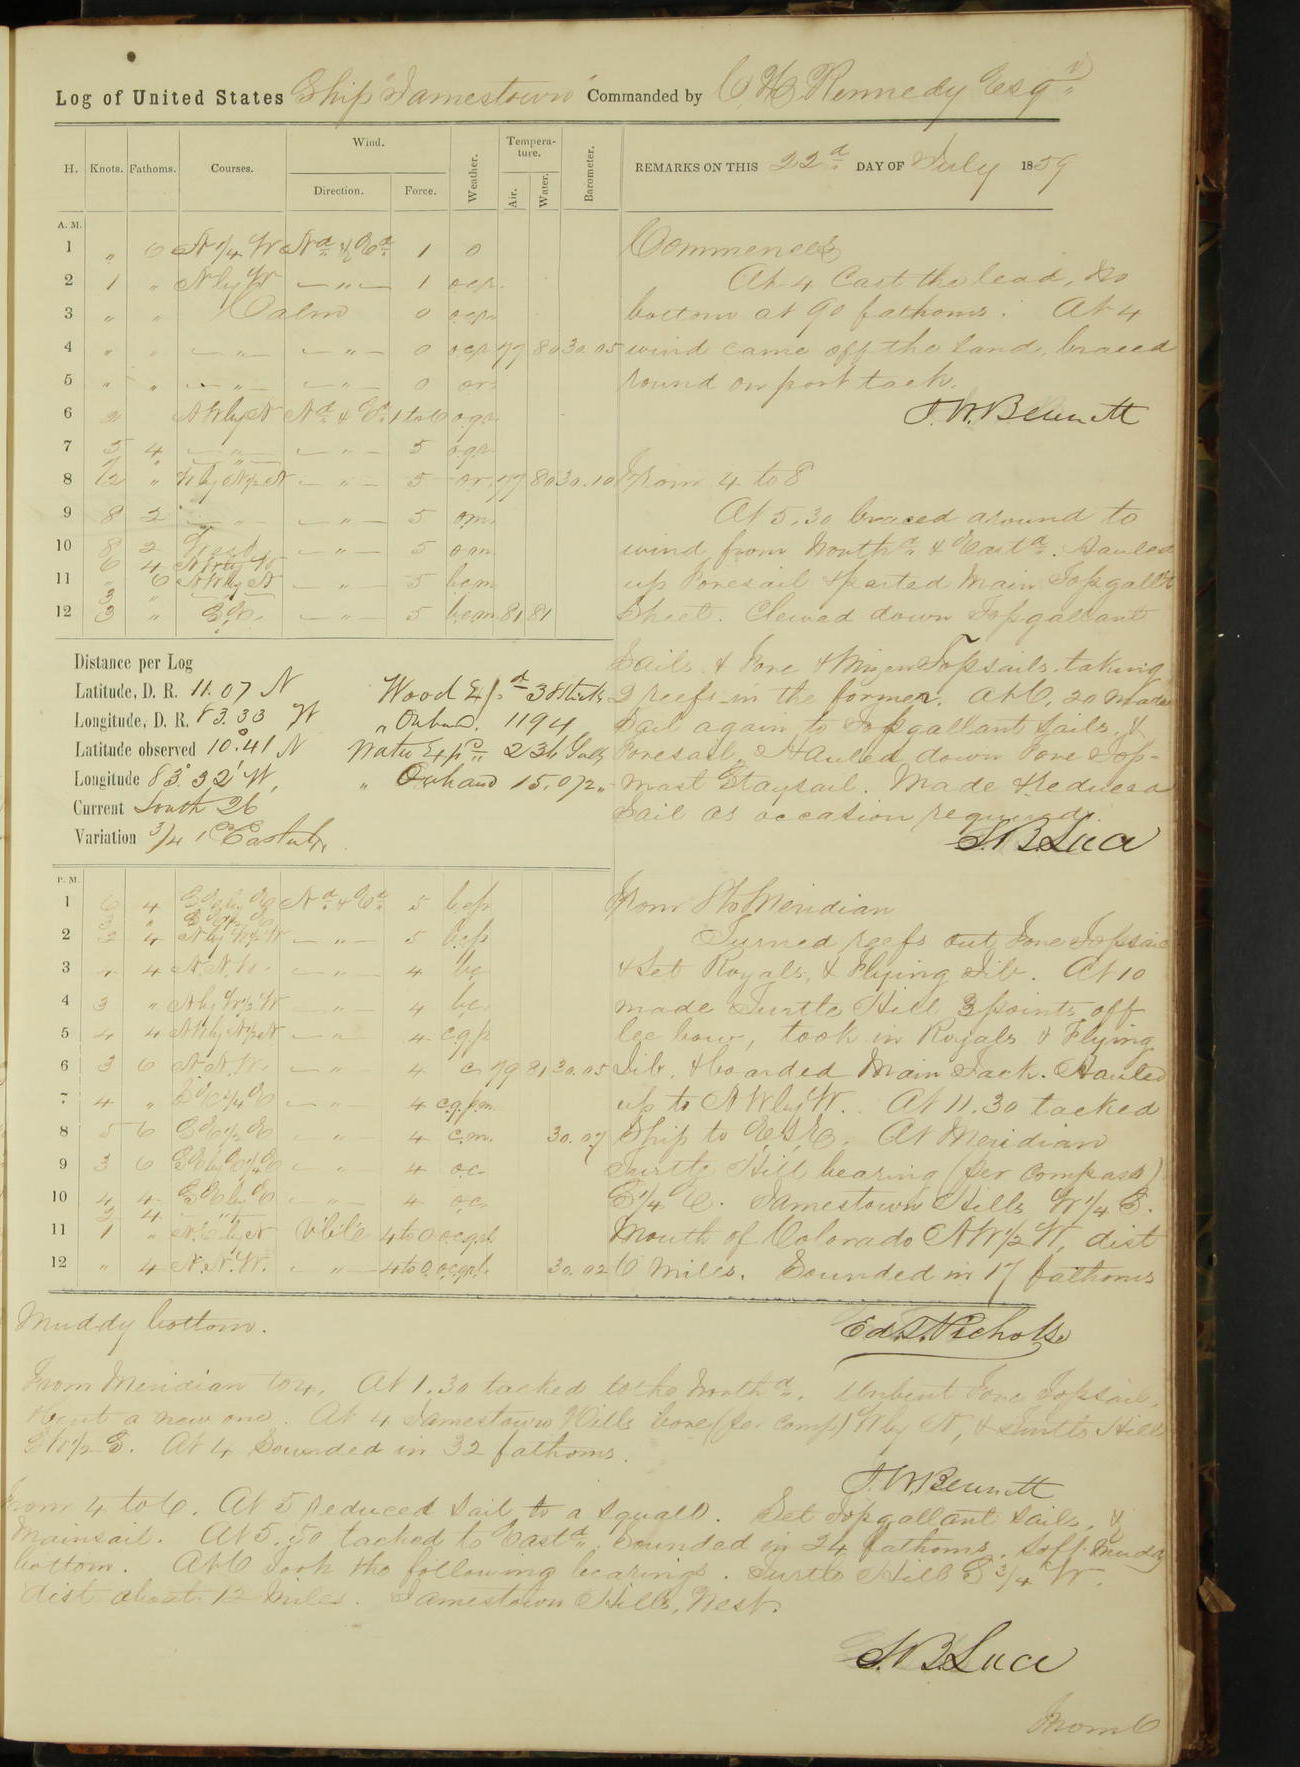 Log of United States Ship "Jamestown" Commanded by C. H. Kennedy Esqr.
H. Knots. Fathoms. Courses. Wind. Direction. Force. Weather. Tempera-ture. Air. Water. Barometer. REMARKS ON THIS 22d DAY OF July 1859
A. M.
1 " 6 N 1/4 W Nd & Ed 1 o
2 1 " N by W — " — 1 ocp.
3 " " Calm 0 ocp
4 " " — " — — " — 0 ocp 77 80 30.05
5 " " — " — — " — 0 or
6 2 NW by N Nd & Ed 1 to 6 o.q.r
7 5 4 — " — — " — 5 o.q.r
8 " — " — 5 or. 77 80 30.10
9 8 2 — " — — " — 5 om
10 8 2 West — " — 5 om
6 4
11 " 6 NW by N — " — 5 bcm
3 "
12 3 " — " — 5 bcm 81 81
Commences
At 4 Cast the lead, no
bottom at 90 fathoms. At 4
wind came off the land, braced
round on port tack.
J. W. Bennett
From 4 to 8
At 5.30 braced around to
wind from Northd & Eastd. Hauled
up Foresail & parted Main Topgall't
Sheet. Clewed down Topgallant
Sails & Fore & Mizen Topsails, taking
2 reefs in the former. At 6.20 made
Sail again to Topgallant Sails, &
Foresail. Hauled down Fore Top-
mast Staysail. Made & reduced
Sail as occasion required.
S. B. Luce
Distance per Log
Latitude, D. R. 11.07 N Wood Exp.d 38 Sticks
Longitude, D. R. 83.33 W " Onhand. 1194
Latitude observed 10°.41 N Water Expd 236 Galls
Longitude 83°.32' W, " Onhand 15.072 "
Current South 26
Variation 3/4
P. M.
1 6 4 Nd & Ed 5 bcp
3 "
2 2 4 — " — 5 bcp
3 4 4 N.N.W. — " — 4 bc
4 3 " N by W 1/2 W — " — 4 bc
5 4 4 — " — 4 cqp
6 3 6 N.N.W. — " — 4 c 79 81 30.05
7 4 " — " — 4 c.q.p.m
8 5 6 — " — 4 c.m. 30.07
9 3 6 — " — 4 oc
10 4 4 — " — 4 oc
2 4
11 1 " Vble 4 to 0
12 " 4 N.N.W. — " — 4 to 0 30.02
From 8 to Meridian
Turned reefs out Fore Topsail
& Set Royals, & Flying Jib. At 10
made Turtle Hill 3 points off
lee bow, took in Royals & Flying
Jib, & boarded Main Tack. Hauled
up to NW by W. At 11.30 tacked
Ship to E.S.E. At Meridian
Turtle Hill bearing (per compass)
S 1/4 E. Jamestown Hills W 1/4 S.
Mouth of Colorado NW 1/2 W, dist
6 miles. Sounded in 17 fathoms
Muddy bottom.
Ed. T. Nichols
From Meridian to 4. At 1.30 tacked to the Northd. Unbent Fore Topsail,
& bent a new one. At 4 Jamestown Hills bore (per comp) W by N, & Turtle Hill
SW 1/2 S. At 4 Sounded in 32 fathoms.
J. W. Bennett
From 4 to 6. At 5 reduced Sail to a squall. Set Topgallant Sails, &
Mainsail. At 5.50 tacked to Eastd. Sounded in 24 fathoms, soft muddy
bottom. At 6 Took the following bearings. Turtle Hill S 3/4 W.
dist about 12 Miles. Jamestown Hills, West.
S. B. Luce
From 6